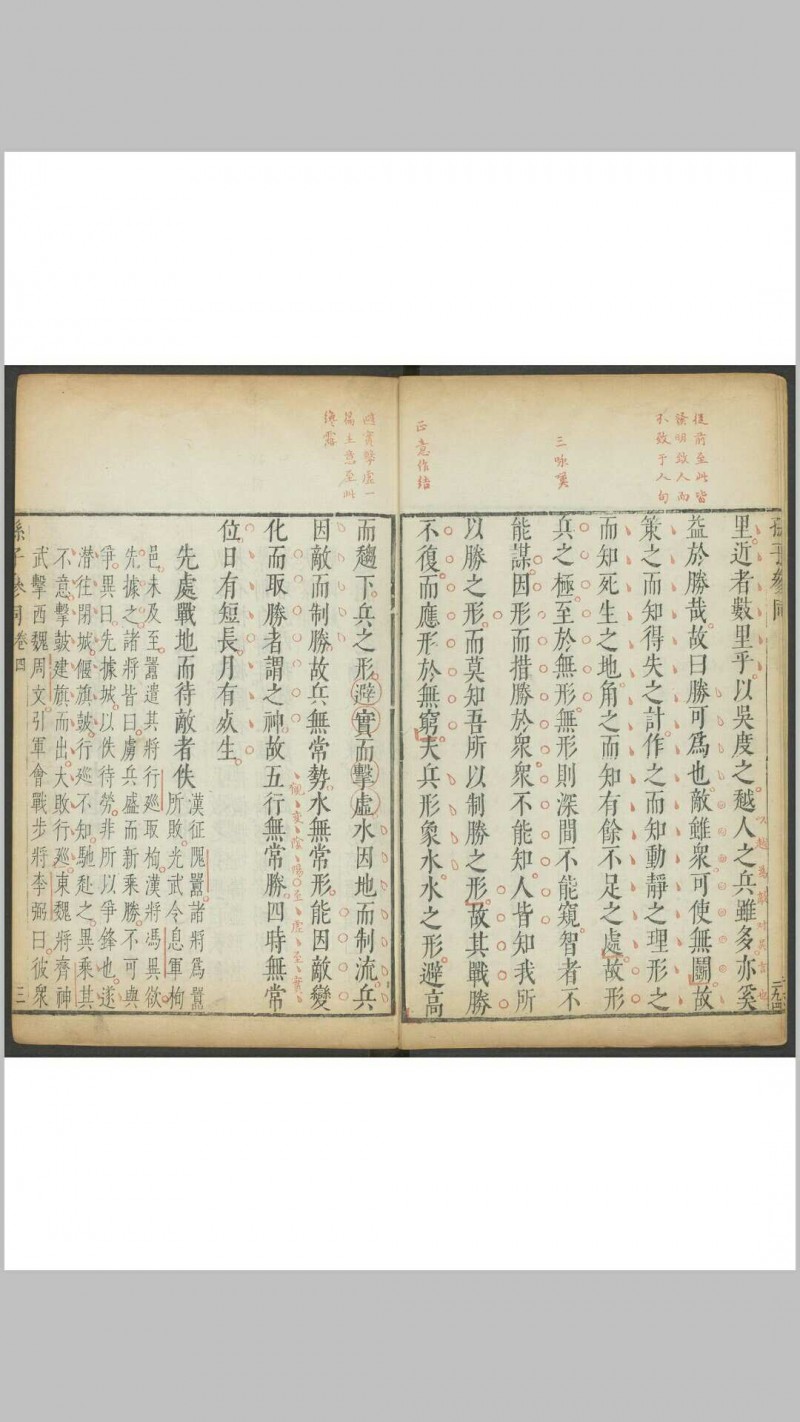 從前至此皆
發明致人而
不致于人句
三咏嘆
正意作結
避實擊虛一
篇主意至此
纔露
里近者數里乎以吳度之越人之兵雖多亦奚
益於勝哉故曰勝可爲也敵雖衆可使無鬬故
策之而知得失之計作之而知動靜之理形之
而知死生之地角之而知有餘不足之處故形
兵之極至於無形無形則深間不能窺智者不
能謀因形而措勝於衆衆不能知人皆知我所
以勝之形而莫知吾所以制勝之形故其戰勝
不復而應形於無窮夫兵形象水水之形避高
而趨下兵之形避實而擊虛水因地而制流兵
因敵而制勝故兵無常勢水無常形能因敵變
化而取勝者謂之神故五行無常勝四時無常
位日有短長月有死生
先處戰地而待敵者佚
漢征隗囂諸將爲囂
所敗光武令息軍栒
邑未及至囂遣其將行巡取栒漢將馮異欲
先據之諸將皆曰虜兵盛而新乘勝不可與
爭異曰先據城以佚待勞非所以爭鋒也遂
潛往閉城偃旗鼓行巡不知馳赴之異乘其
不意擊鼓建旗而出大敗行巡東魏將齊神
武擊西魏周文引軍會戰步將李弼曰彼衆
孫子參同卷四
三